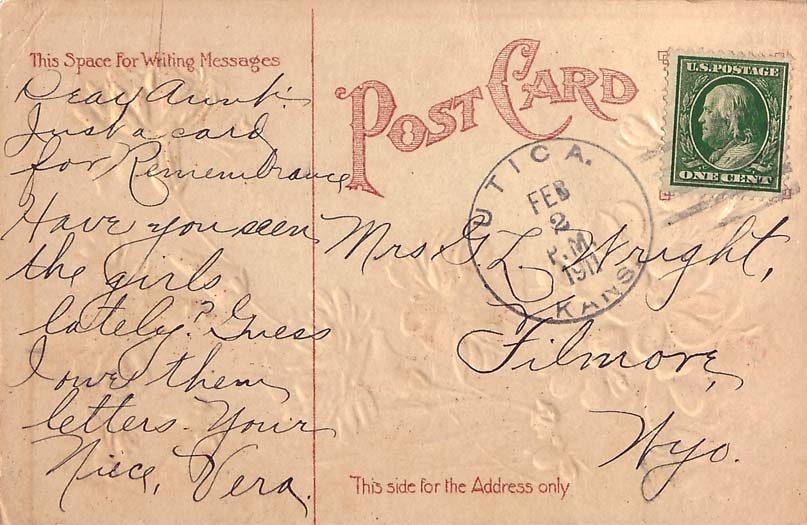 This Space For Writing Messages
POST CARD
U.S. POSTAGE
ONE CENT
UTICA.
FEB
2
P.M.
1911
KANS.
Dear Aunt:
Just a card
for Remembrance
Have you seen
the girls
lately? Guess
I owe them
letters. Your
Niece, Vera.
Mrs G L Wright,
Filmore,
Wyo.
This side for the Address only